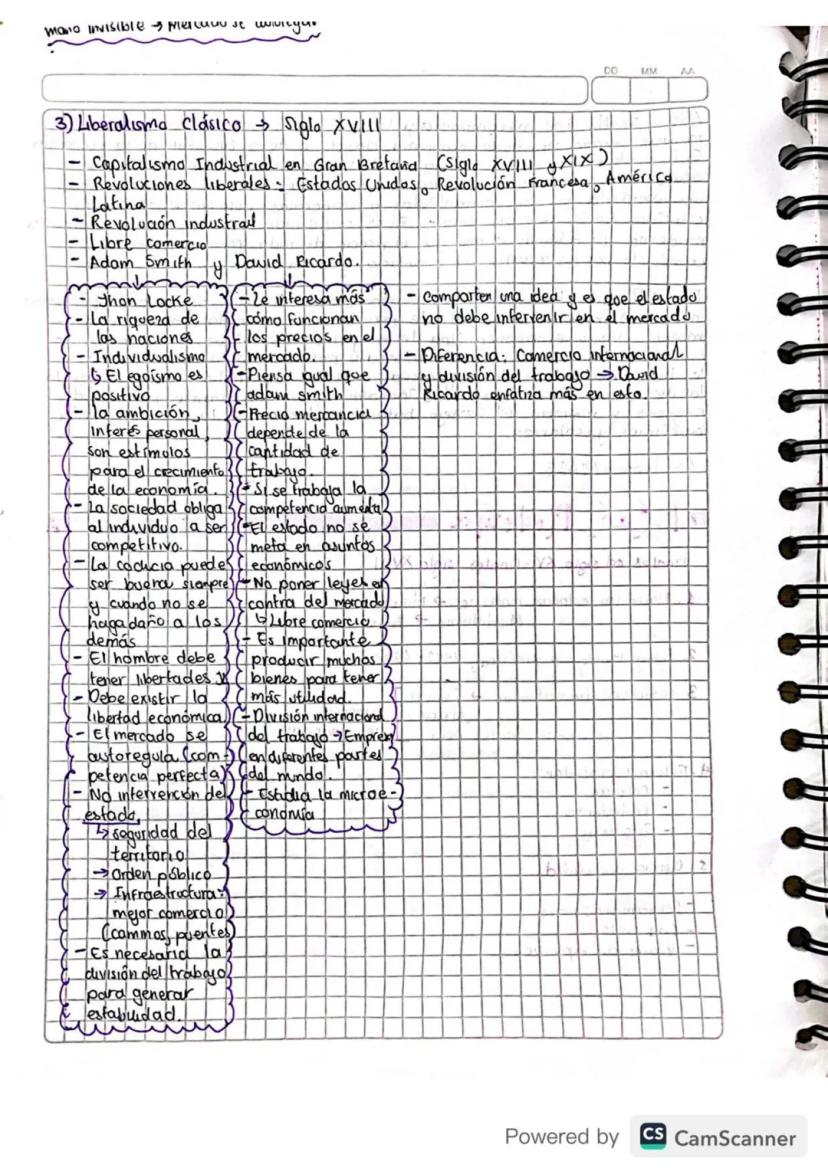 mano invisible → Mercado se
DD MM AA
3) Liberalismo Clásico → Siglo XVIII
- Capitalismo Industrial en Gran Bretaña (Siglo XVIII y XIX)
- Revoluciones liberales: Estados Unidos, Revolución Francesa, América
Latina
- Revolución industrail
- Libre comercio
- Adam Smith y David Ricardo.
- Jhon Locke
- La riqueza de
las naciones
- Individualismo
↳ El egoísmo es
positivo
- la ambición,
interés personal,
son estímulos
para el crecimiento
de la economía.
- La sociedad obliga
al individuo a ser
competitivo.
- La codicia puede
ser buena siempre
y cuando no se
haga daño a los
demás
- El hombre debe
tener libertades y
- Debe existir la
libertad económica
- El mercado se
autoregula (com-
petencia perfecta)
- No intervención del
estado,
↳ seguridad del
territorio
→ Orden público
→ Infraestructura:
mejor comercio
(caminos, puentes)
- Es necesaria la
división del trabajo
para generar
estabilidad.
- Le interesa más
cómo funcionan
los precios en el
mercado.
- Piensa igual que
adam smith
- Precio mercancia
depende de la
cantidad de
trabajo.
- Si se trabaja la
competencia aumenta
- El estado no se
meta en asuntos
económicos
- No poner leyes en
contra del mercado
↳ Libre comercio
- Es importante
producir muchos
bienes para tener
más utilidad.
- División internacional
del trabajo → Empresa
en diferentes partes
del mundo.
- Estudia la microe-
conomía
- Comparten una idea y es que el estado
no debe intervenir en el mercado
- Diferencia: Comercio internacional
y división del trabajo → David
Ricardo enfatiza más en esto.
Powered by CS CamScanner